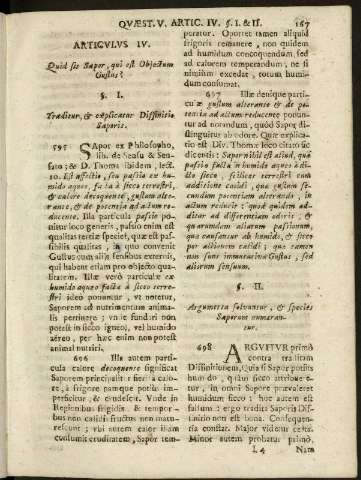 QVÆST. V. ARTIC. IV. §. I. & II. 167
ARTICVLVS IV.
Quid sit Sapor, qui est Objectum
Gustus?
§. I.
Traditur, & explicatur Diffinitio
Saporis.
595 Sapor ex Philosopho,
lib. de Sensu & Sen-
sato; & D. Thoma ibidem, lect.
10. Est affectio, seu passio ex hu-
mido aqueo, facta à sicco terrestri,
& calore decoquente, gustum alte-
rans, & de potentia ad actum re-
ducente. Illa particula passio poni-
tur loco generis, passio enim est
qualitas tertiæ speciei, quæ est pas-
sibilis qualitas, in quo convenit
Gustus cum aliis sensibus externis,
qui habent etiam pro objecto qua-
litatem. Illæ verò particulæ ex
humido aqueo facta à sicco terre-
stri ideo ponuntur, vt notetur,
Saporem ad nutrimentum anima-
lis pertinere; vnde fundari non
potest in sicco igneo, vel humido
aëreo, per hæc enim non potest
animal nutriri.
696 Illa autem parti-
cula calore decoquente significat
Saporem principaliter fieri à calo-
re, à frigore namque potius im-
perficitur, & crudescit. Vnde in
Regionibus frigidis & tempor-
bus non calidis fructus non matu-
rescunt; vbi autem calor illam
consumit cruditatem, Sapor tem-
peratur. Oportet tamen aliquid
frigoris remanere, non quidem
ad humidum concoquendum, sed
ad calorem temperandum, ne si
nimium excedat, totum humi-
dum consumat.
697 Illæ denique parti-
culæ gustum alterante & de po-
tentia ad actum reducente ponun-
tur ad notandum, quòd Sapor di-
stinguitur ab odore. Quæ explica-
tio est Div. Thomæ loco citato sic
dicentis: Sapor nihil est aliud, quàm
passio facta in humido aqueo à di-
cto sicco, scilicet terrestri cum
additione calidi, quæ gustum se-
cundum potentiam alterando, in
actum reducit: quod quidem ad-
ditur ad differentiam odoris, &
quarumdam aliarum passionum,
quæ causantur ab humido, & sicco
per actionem calidi; quæ tamen
non sunt immutativæ Gustus, sed
aliorum sensuum.
§. II.
Argumenta solvuntur, & species
Saporum numeran-
tur.
698 ARGVITVR primò
contra traditam
Diffinitionem, Quia si Sapor potiùs
humido, quàm sicco attribue-
tur, in omni Sapore prævaleret
humidum sicco: hoc autem est
falsum: ergo tradita Saporis Dif-
finitio non est bona. Consequen-
tia constat. Major videtur certa.
Minor autem probatur primò,
L 4 Nam